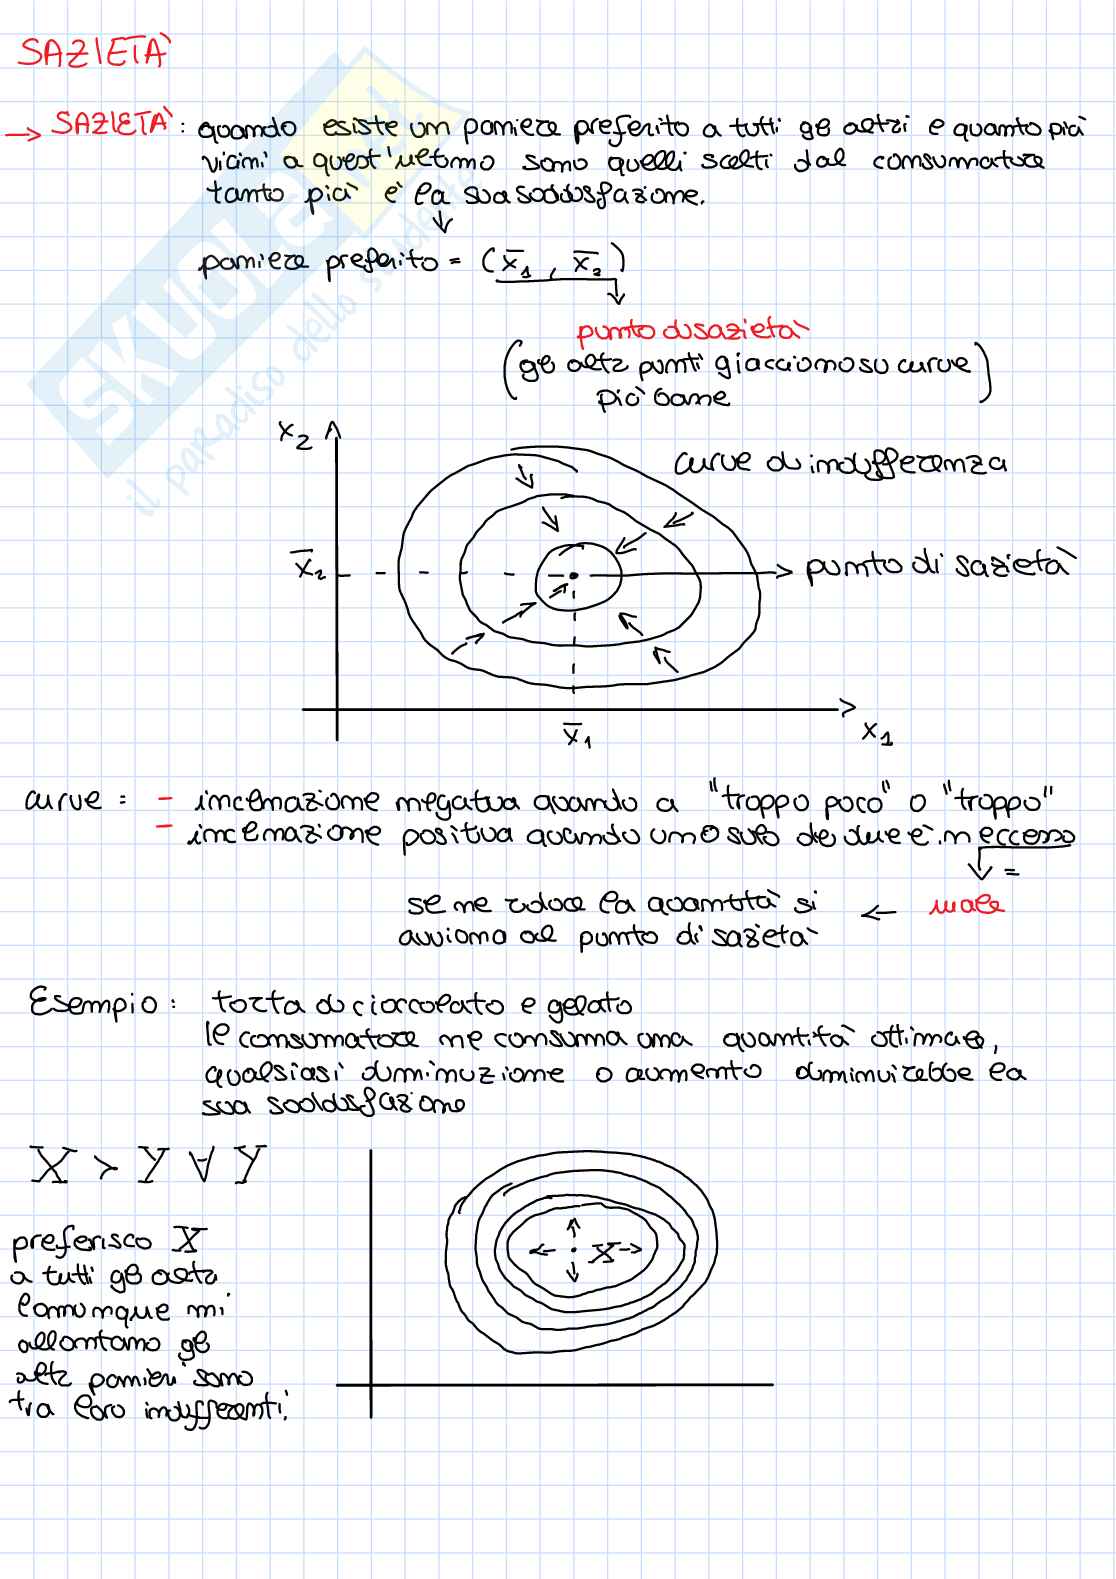 SAZIETÀ
→ SAZIETÀ: quando esiste un paniere preferito a tutti gli altri e quanto più
vicini a quest'ultimo sono quelli scelti dal consumatore
tanto più è la sua soddisfazione.
↓
paniere preferito = (x̄₁, x̄₂)
↓
punto di sazietà
(gli altri punti giacciono su curve
più basse)
x₂
curve di indifferenza
x̄₂
→ punto di sazietà
x̄₁
x₁
curve: - inclinazione negativa quando a "troppo poco" o "troppo"
- inclinazione positiva quando uno solo dei due è in eccesso
↓ =
se ne riduce la quantità si ← male
avviano al punto di sazietà
Esempio: torta di cioccolato e gelato
le consumatore ne consuma una quantità ottimale,
qualsiasi diminuzione o aumento diminuirebbe la
sua soddisfazione
X ≻ Y ∀ Y
preferisco X
a tutti gli altri
comunque mi
allontano gli
altri panieri sono
tra loro indifferenti.
X
SKUOLA.net
il paradiso dello studente